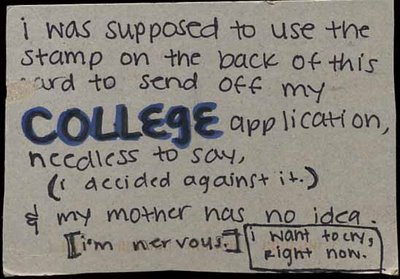 i was supposed to use the
stamp on the back of this
card to send off my
COLLEgE application,
needless to say,
(i decided against it.)
& my mother has no idea.
[i'm nervous.]
i want to cry,
right now.